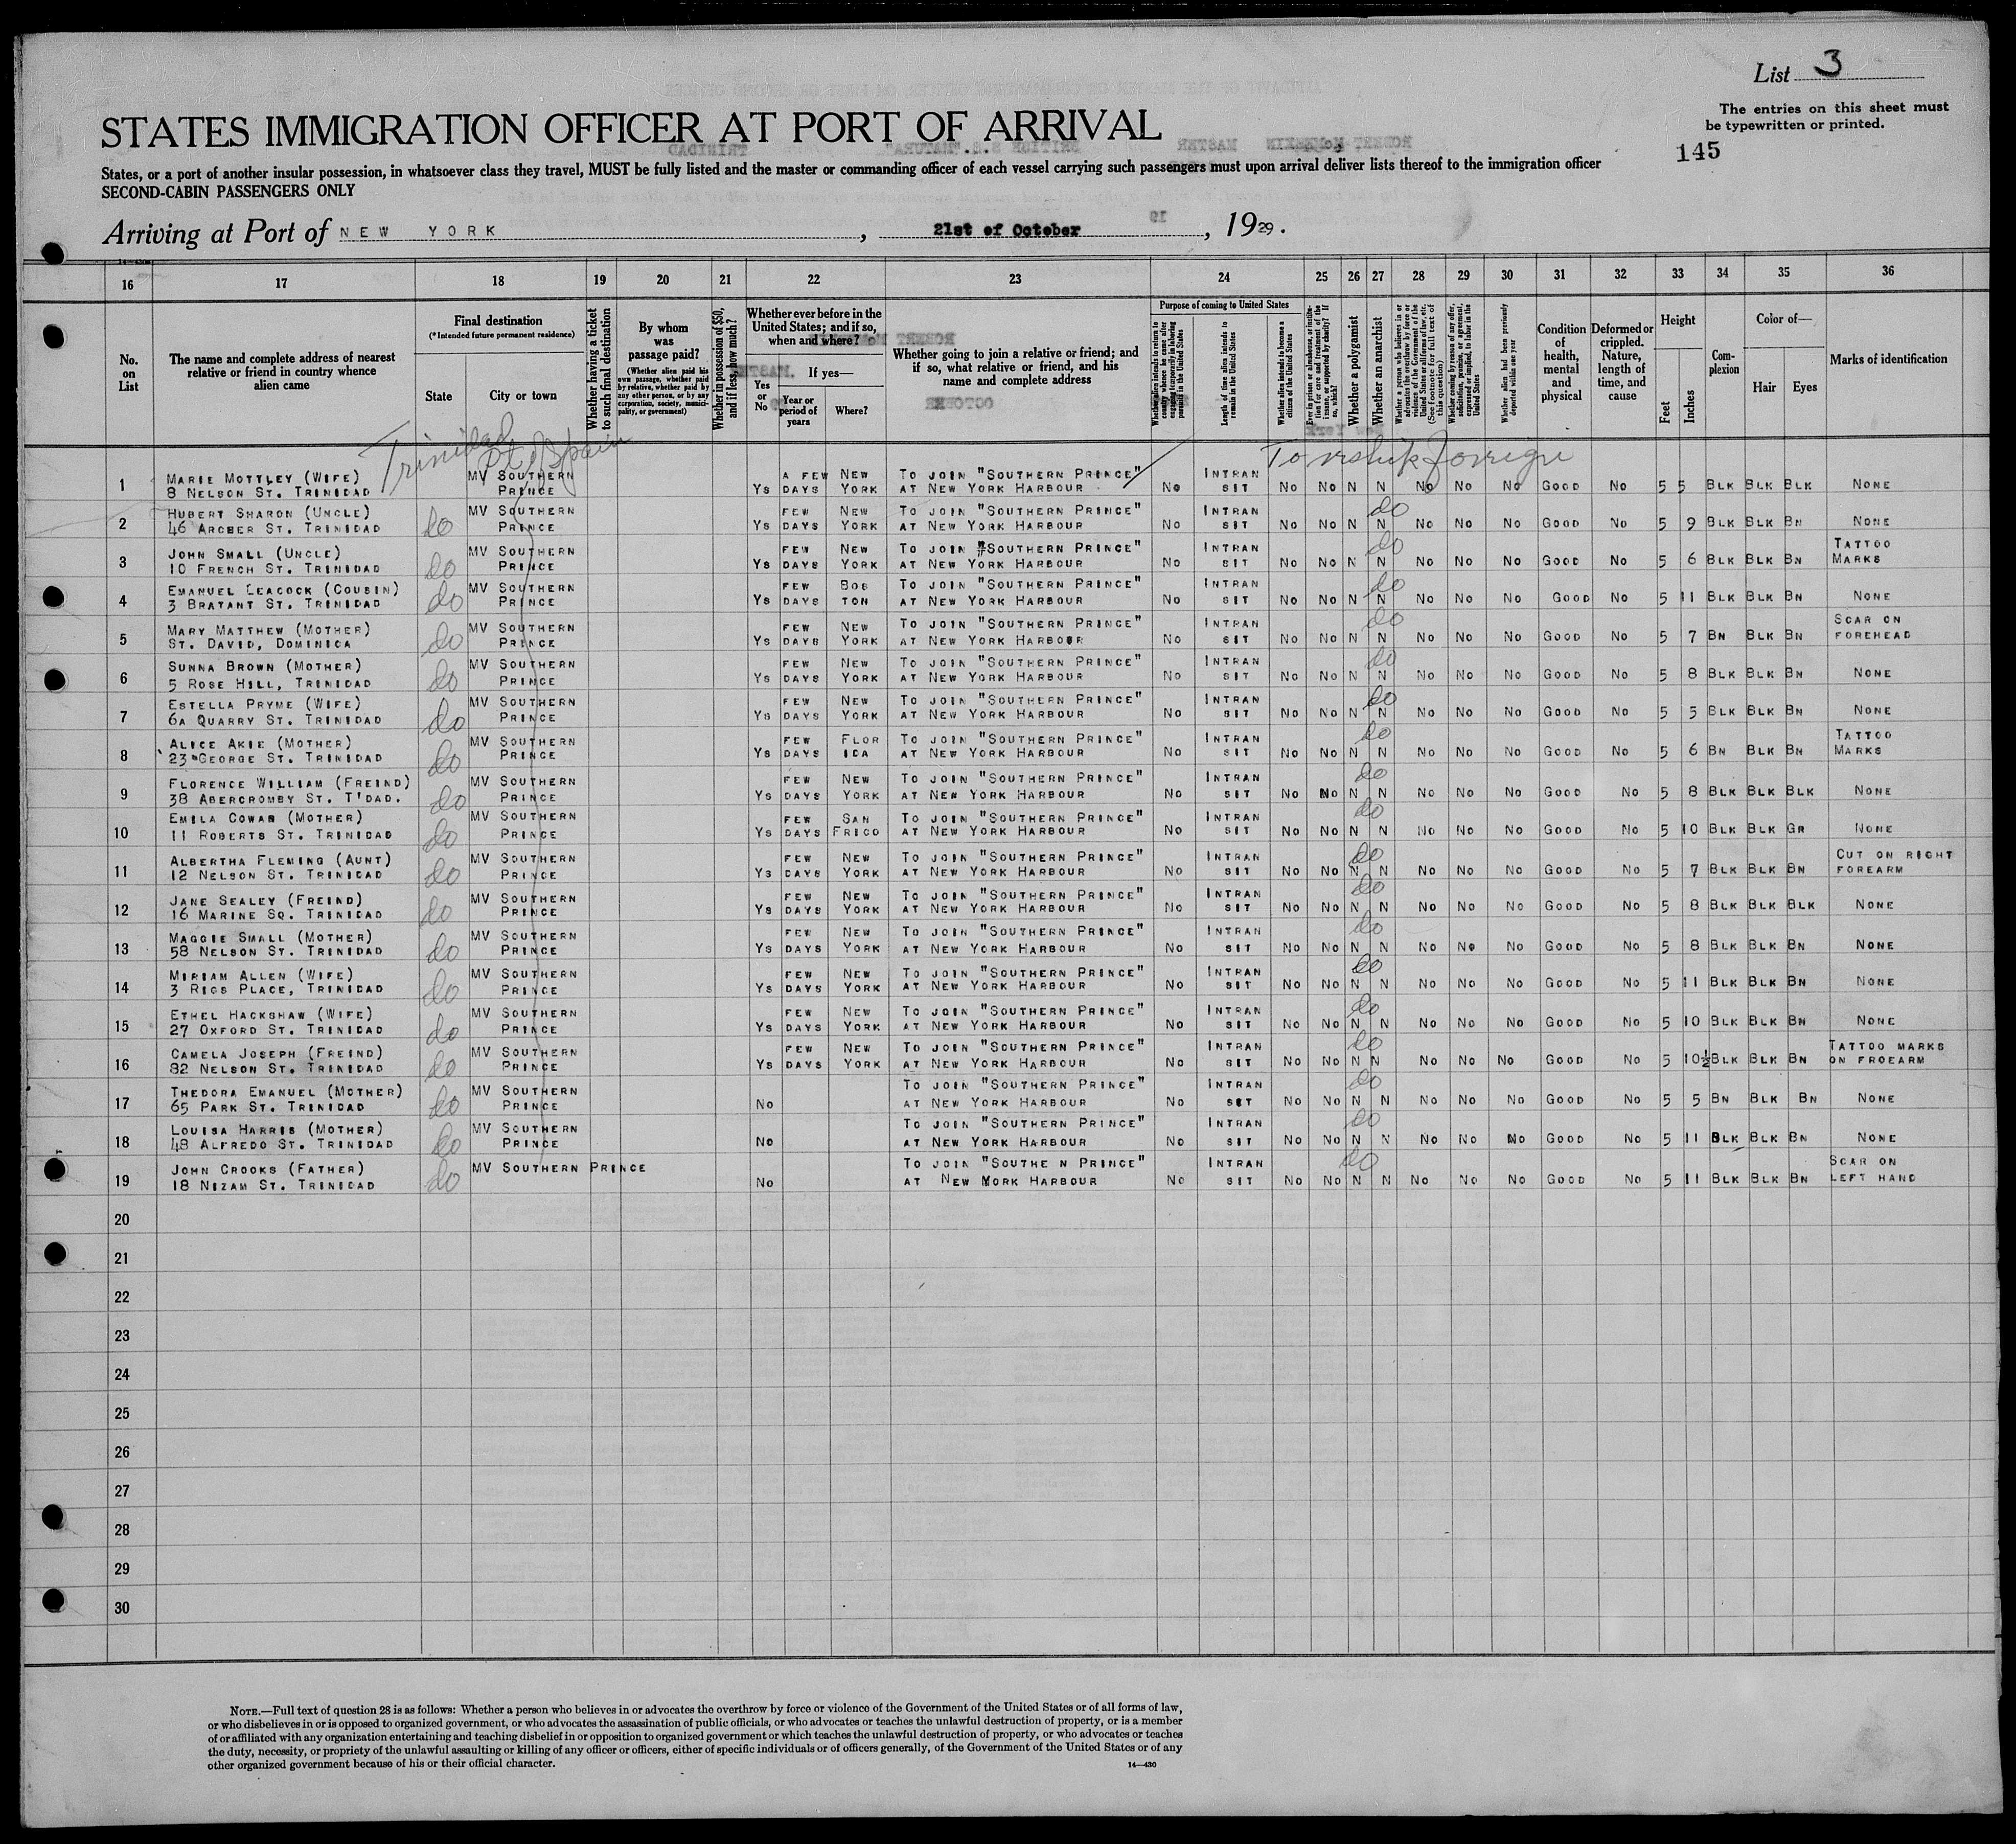 List 3
The entries on this sheet must
be typewritten or printed.
145
STATES IMMIGRATION OFFICER AT PORT OF ARRIVAL
States, or a port of another insular possession, in whatsoever class they travel, MUST be fully listed and the master or commanding officer of each vessel carrying such passengers must upon arrival deliver lists thereof to the immigration officer
SECOND-CABIN PASSENGERS ONLY
Arriving at Port of NEW YORK, 21st of October, 1929.
16 17 18 19 20 21 22 23 24 25 26 27 28 29 30 31 32 33 34 35 36
No. on List
The name and complete address of nearest relative or friend in country whence alien came
Final destination (*Intended future permanent residence)
State
City or town
Whether having a ticket to such final destination
By whom was passage paid? (Whether alien paid his own passage, whether paid by relative, whether paid by any other person, or by any corporation, society, municipality, or government)
Whether in possession of $50, and if less, how much?
Whether ever before in the United States; and if so, when and where?
Yes or No
If yes—
Year or period of years
Where?
Whether going to join a relative or friend; and if so, what relative or friend, and his name and complete address
Purpose of coming to United States
Whether alien intends to return to country whence he came after engaging temporarily in laboring pursuits in the United States
Length of time alien intends to remain in the United States
Whether alien intends to become a citizen of the United States
Ever in prison or almshouse, or institution for care and treatment of the insane, or supported by charity? If so, which?
Whether a polygamist
Whether an anarchist
Whether a person who believes in or advocates the overthrow by force or violence of the Government of the United States or all forms of law, etc. (See footnote for full text of this question)
Whether coming by reason of any offer, solicitation, promise, or agreement, expressed or implied, to labor in the United States
Whether alien had been previously deported within one year
Condition of health, mental and physical
Deformed or crippled. Nature, length of time, and cause
Height
Feet
Inches
Complexion
Color of—
Hair
Eyes
Marks of identification
Trinidad
Pt. of Spain
To reship foreign
1 MARIE MOTTLEY (WIFE) 8 NELSON ST. TRINIDAD MV SOUTHERN PRINCE YS A FEW DAYS NEW YORK TO JOIN "SOUTHERN PRINCE" AT NEW YORK HARBOUR NO INTRAN SIT NO NO N N NO NO NO GOOD NO 5 5 BLK BLK BLK NONE
2 HUBERT SHARON (UNCLE) 46 ARCHER ST. TRINIDAD do MV SOUTHERN PRINCE YS FEW DAYS NEW YORK TO JOIN "SOUTHERN PRINCE" AT NEW YORK HARBOUR NO INTRAN SIT NO NO N N do NO NO NO GOOD NO 5 9 BLK BLK BN NONE
3 JOHN SMALL (UNCLE) 10 FRENCH ST. TRINIDAD do MV SOUTHERN PRINCE YS FEW DAYS NEW YORK TO JOIN "SOUTHERN PRINCE" AT NEW YORK HARBOUR NO INTRAN SIT NO NO N N do NO NO NO GOOD NO 5 6 BLK BLK BN TATTOO MARKS
4 EMANUEL LEACOCK (COUSIN) 3 BRATANT ST. TRINIDAD do MV SOUTHERN PRINCE YS FEW DAYS BOSTON TO JOIN "SOUTHERN PRINCE" AT NEW YORK HARBOUR NO INTRAN SIT NO NO N N do NO NO NO GOOD NO 5 11 BLK BLK BN NONE
5 MARY MATTHEW (MOTHER) ST. DAVID, DOMINICA do MV SOUTHERN PRINCE YS FEW DAYS NEW YORK TO JOIN "SOUTHERN PRINCE" AT NEW YORK HARBOUR NO INTRAN SIT NO NO N N do NO NO NO GOOD NO 5 7 BN BLK BN SCAR ON FOREHEAD
6 SUNNA BROWN (MOTHER) 5 ROSE HILL, TRINIDAD do MV SOUTHERN PRINCE YS FEW DAYS NEW YORK TO JOIN "SOUTHERN PRINCE" AT NEW YORK HARBOUR NO INTRAN SIT NO NO N N do NO NO NO GOOD NO 5 8 BLK BLK BN NONE
7 ESTELLA PRYME (WIFE) 6A QUARRY ST. TRINIDAD do MV SOUTHERN PRINCE YS FEW DAYS NEW YORK TO JOIN "SOUTHERN PRINCE" AT NEW YORK HARBOUR NO INTRAN SIT NO NO N N do NO NO NO GOOD NO 5 5 BLK BLK BN NONE
8 ALICE AKIE (MOTHER) 23 GEORGE ST. TRINIDAD do MV SOUTHERN PRINCE YS FEW DAYS FLORIDA TO JOIN "SOUTHERN PRINCE" AT NEW YORK HARBOUR NO INTRAN SIT NO NO N N do NO NO NO GOOD NO 5 6 BN BLK BN TATTOO MARKS
9 FLORENCE WILLIAM (FREIND) 38 ABERCROMBY ST. T'DAD. do MV SOUTHERN PRINCE YS FEW DAYS NEW YORK TO JOIN "SOUTHERN PRINCE" AT NEW YORK HARBOUR NO INTRAN SIT NO NO N N do NO NO NO GOOD NO 5 8 BLK BLK BLK NONE
10 EMILA COWAN (MOTHER) 11 ROBERTS ST. TRINIDAD do MV SOUTHERN PRINCE YS FEW DAYS SAN FRICO TO JOIN "SOUTHERN PRINCE" AT NEW YORK HARBOUR NO INTRAN SIT NO NO N N do NO NO NO GOOD NO 5 10 BLK BLK GR NONE
11 ALBERTHA FLEMING (AUNT) 12 NELSON ST. TRINIDAD do MV SOUTHERN PRINCE YS FEW DAYS NEW YORK TO JOIN "SOUTHERN PRINCE" AT NEW YORK HARBOUR NO INTRAN SIT NO NO N N do NO NO NO GOOD NO 5 7 BLK BLK BN CUT ON RIGHT FOREARM
12 JANE SEALEY (FREIND) 16 MARINE SQ. TRINIDAD do MV SOUTHERN PRINCE YS FEW DAYS NEW YORK TO JOIN "SOUTHERN PRINCE" AT NEW YORK HARBOUR NO INTRAN SIT NO NO N N do NO NO NO GOOD NO 5 8 BLK BLK BLK NONE
13 MAGGIE SMALL (MOTHER) 58 NELSON ST. TRINIDAD do MV SOUTHERN PRINCE YS FEW DAYS NEW YORK TO JOIN "SOUTHERN PRINCE" AT NEW YORK HARBOUR NO INTRAN SIT NO NO N N do NO NO NO GOOD NO 5 8 BLK BLK BN NONE
14 MIRIAM ALLEN (WIFE) 3 RIGS PLACE, TRINIDAD do MV SOUTHERN PRINCE YS FEW DAYS NEW YORK TO JOIN "SOUTHERN PRINCE" AT NEW YORK HARBOUR NO INTRAN SIT NO NO N N do NO NO NO GOOD NO 5 11 BLK BLK BN NONE
15 ETHEL HACKSHAW (WIFE) 27 OXFORD ST. TRINIDAD do MV SOUTHERN PRINCE YS FEW DAYS NEW YORK TO JOIN "SOUTHERN PRINCE" AT NEW YORK HARBOUR NO INTRAN SIT NO NO N N do NO NO NO GOOD NO 5 10 BLK BLK BN NONE
16 CAMELA JOSEPH (FREIND) 82 NELSON ST. TRINIDAD do MV SOUTHERN PRINCE YS FEW DAYS NEW YORK TO JOIN "SOUTHERN PRINCE" AT NEW YORK HARBOUR NO INTRAN SIT NO NO N N do NO NO NO GOOD NO 5 10½ BLK BLK BN TATTOO MARKS ON FROEARM
17 THEDORA EMANUEL (MOTHER) 65 PARK ST. TRINIDAD do MV SOUTHERN PRINCE NO TO JOIN "SOUTHERN PRINCE" AT NEW YORK HARBOUR NO INTRAN SIT NO NO N N do NO NO NO GOOD NO 5 5 BN BLK BN NONE
18 LOUISA HARRIS (MOTHER) 48 ALFREDO ST. TRINIDAD do MV SOUTHERN PRINCE NO TO JOIN "SOUTHERN PRINCE" AT NEW YORK HARBOUR NO INTRAN SIT NO NO N N do NO NO NO GOOD NO 5 11 BLK BLK BN NONE
19 JOHN CROOKS (FATHER) 18 NIZAM ST. TRINIDAD do MV SOUTHERN PRINCE NO TO JOIN "SOUTHE N PRINCE" AT NEW YORK HARBOUR NO INTRAN SIT NO NO N N do NO NO NO GOOD NO 5 11 BLK BLK BN SCAR ON LEFT HAND
20
21
22
23
24
25
26
27
28
29
30
NOTE.—Full text of question 28 is as follows: Whether a person who believes in or advocates the overthrow by force or violence of the Government of the United States or of all forms of law,
or who disbelieves in or is opposed to organized government, or who advocates the assassination of public officials, or who advocates or teaches the unlawful destruction of property, or is a member
of or affiliated with any organization entertaining and teaching disbelief in or opposition to organized government or which teaches the unlawful destruction of property, or who advocates or teaches
the duty, necessity, or propriety of the unlawful assaulting or killing of any officer or officers, either of specific individuals or of officers generally, of the Government of the United States or of any
other organized government because of his or their official character.
14—430